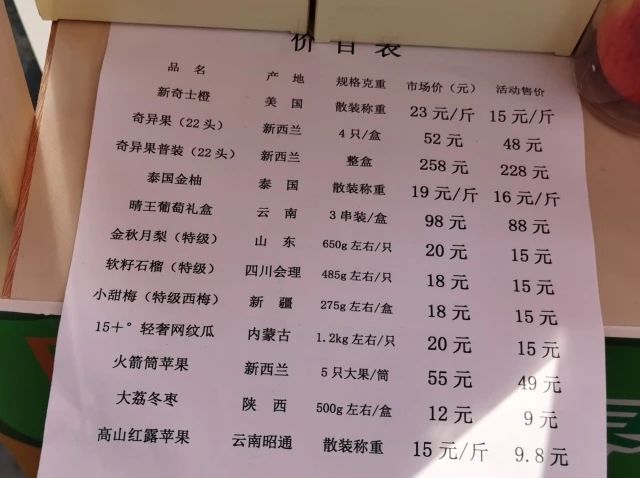 价目表
品名 产地 规格克重 市场价（元） 活动售价
新奇士橙 美国 散装称重 23元/斤 15元/斤
奇异果（22头） 新西兰 4只/盒 52元 48元
奇异果普装（22头） 新西兰 整盒 258元 228元
泰国金柚 泰国 散装称重 19元/斤 16元/斤
晴王葡萄礼盒 云南 3串装/盒 98元 88元
金秋月梨（特级） 山东 650g左右/只 20元 15元
软籽石榴（特级） 四川会理 485g左右/只 18元 15元
小甜梅（特级西梅） 新疆 275g左右/盒 18元 15元
15+°轻奢网纹瓜 内蒙古 1.2kg左右/只 20元 15元
火箭筒苹果 新西兰 5只大果/筒 55元 49元
大荔冬枣 陕西 500g左右/盒 12元 9元
高山红露苹果 云南昭通 散装称重 15元/斤 9.8元